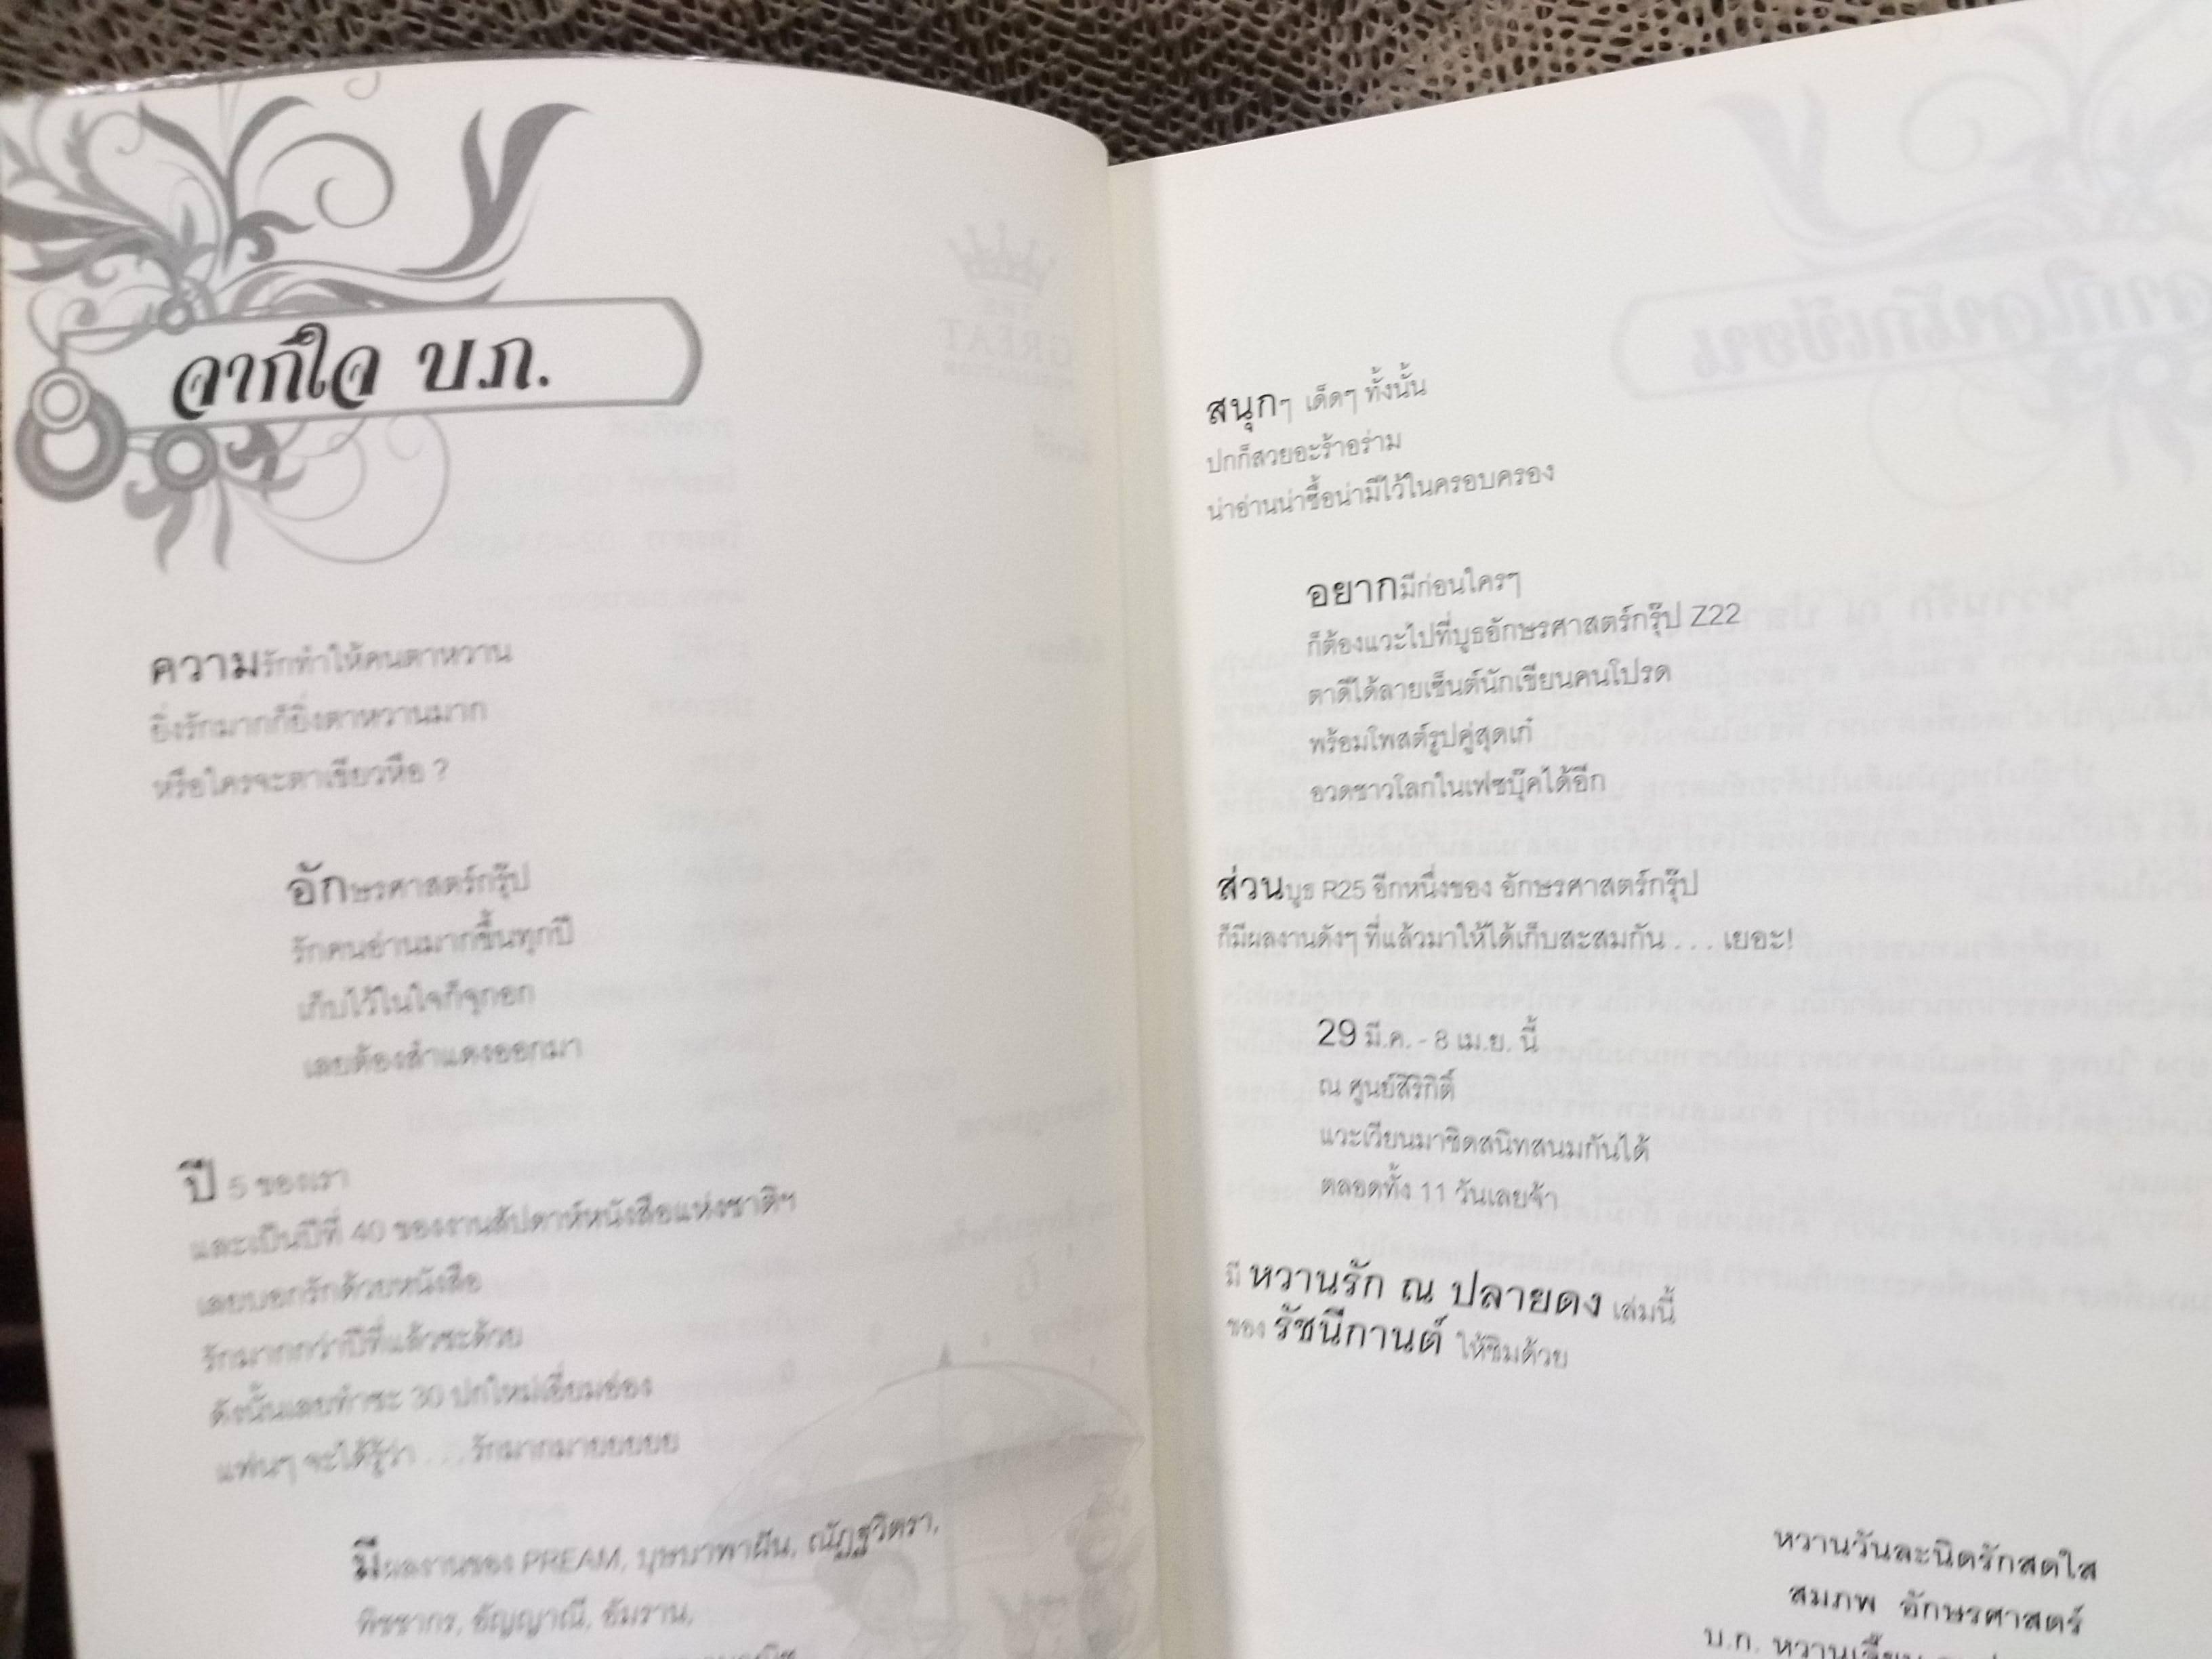 จากใจ บ.ก.
ความรักทำให้คนตาหวาน
ยิ่งรักมากก็ยิ่งตาหวานมาก
หรือใครจะตาเขียวหือ ?
อักษรศาสตร์กรุ๊ป
รักคนอ่านมากขึ้นทุกปี
เก็บไว้ในใจก็จุกอก
เลยต้องสำแดงออกมา
ปี 5 ของเรา
และเป็นปีที่ 40 ของงานสัปดาห์หนังสือแห่งชาติฯ
เลยบอกรักด้วยหนังสือ
รักมากกว่าปีที่แล้วซะด้วย
ดังนั้นเลยทำซะ 30 ปกใหม่เอี่ยมอ่อง
แฟนๆ จะได้รู้ว่า . . . รักมากมายยยยย
มีผลงานของ PREAM, บุษบาพาฝัน, ณัฏฐวิตรา,
พิชชากร, อัญญาณี, อัมราน,
สนุกๆ เด็ดๆ ทั้งนั้น
ปกก็สวยอะร้าอร่าม
น่าอ่านน่าซื้อน่ามีไว้ในครอบครอง
อยากมีก่อนใครๆ
ก็ต้องแวะไปที่บูธอักษรศาสตร์กรุ๊ป Z22
ตาดีได้ลายเซ็นต์นักเขียนคนโปรด
พร้อมโพสต์รูปคู่สุดเก๋
อวดชาวโลกในเฟซบุ๊คได้อีก
ส่วนบูธ R25 อีกหนึ่งของ อักษรศาสตร์กรุ๊ป
ก็มีผลงานดังๆ ที่แล้วมาให้ได้เก็บสะสมกัน . . . เยอะ!
29 มี.ค. - 8 เม.ย. นี้
ณ ศูนย์สิริกิติ์
แวะเวียนมาชิดสนิทสนมกันได้
ตลอดทั้ง 11 วันเลยจ้า
มี หวานรัก ณ ปลายดง เล่มนี้
ของ รัชนีกานต์ ให้ชิมด้วย
หวานวันละนิดรักสดใส
สมภพ อักษรศาสตร์
บ.ก.